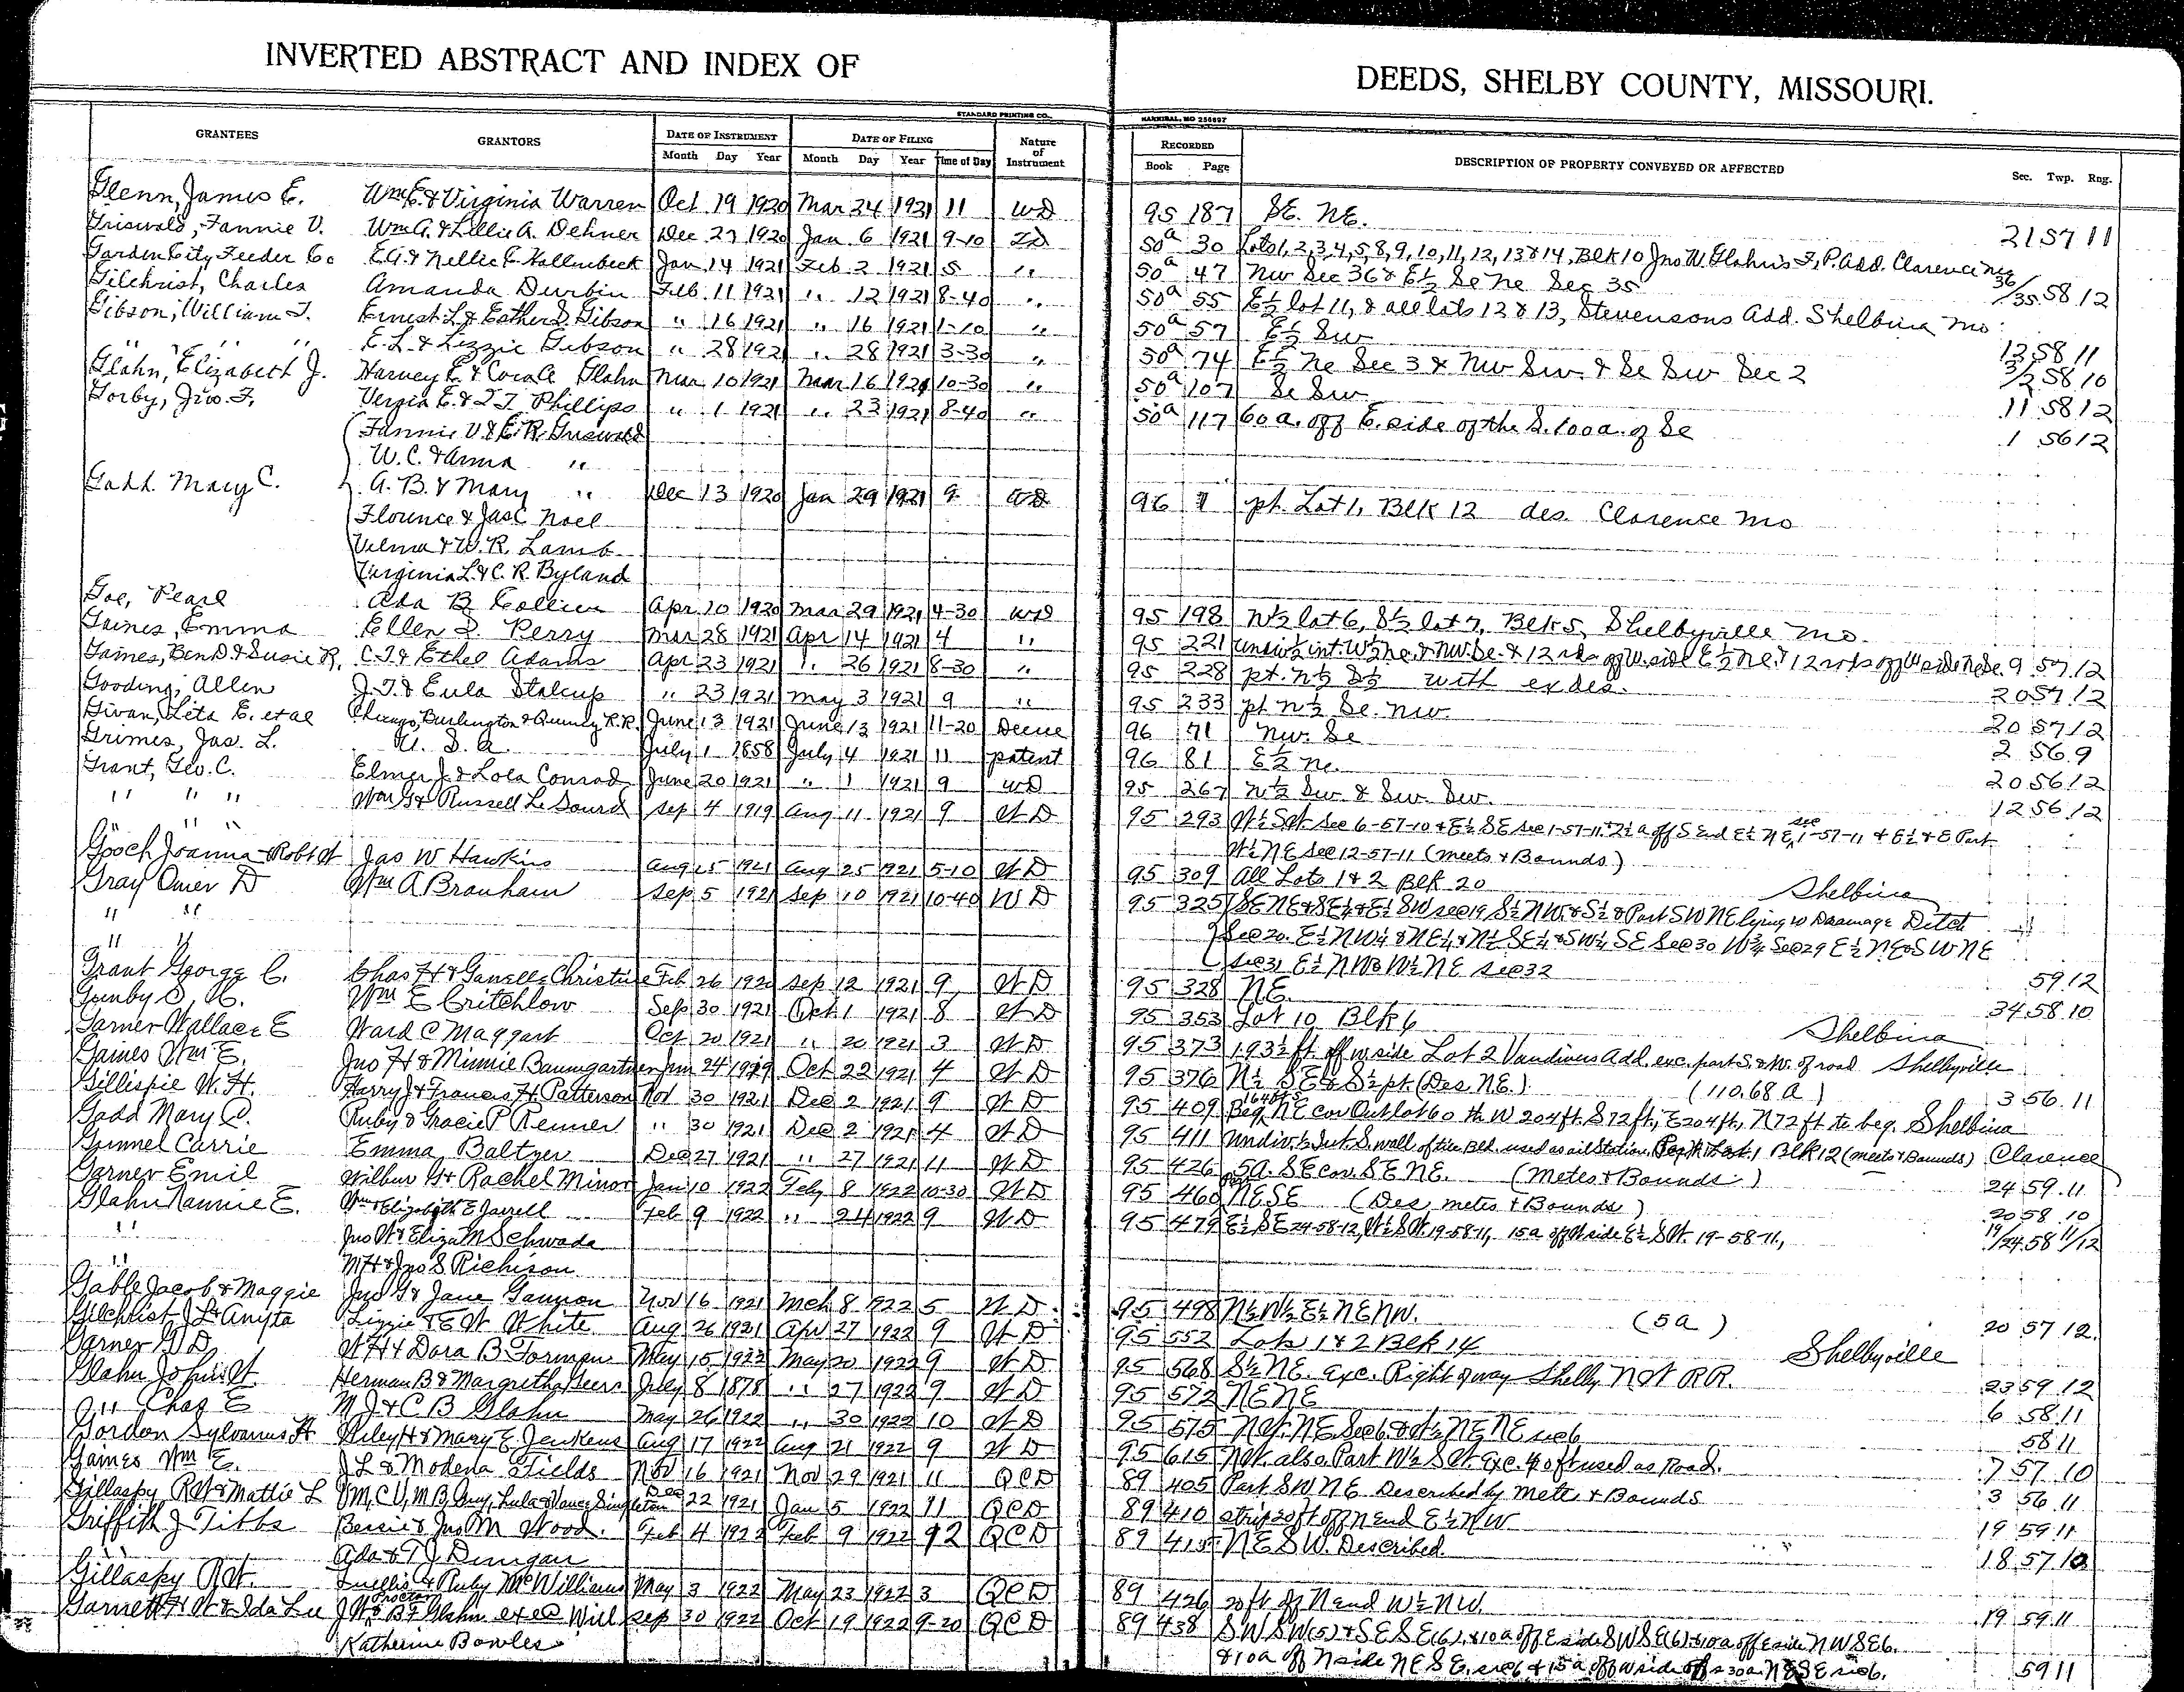 INVERTED ABSTRACT AND INDEX OF DEEDS, SHELBY COUNTY, MISSOURI.
STANDARD PRINTING CO., HANNIBAL, MO 256697
GRANTEES GRANTORS DATE OF INSTRUMENT DATE OF FILING Nature of Instrument RECORDED DESCRIPTION OF PROPERTY CONVEYED OR AFFECTED
Month Day Year Month Day Year Time of Day Book Page Sec. Twp. Rng.
Glenn, James E. Wm E. & Virginia Warren Oct 19 1920 Mar 24 1921 11 WD 95 187 SE. NE. 21 57 11
Griswold, Fannie V. Wm A. & Lillie A. Dehner Dec 27 1920 Jan 6 1921 9-10 50a 30 Lots 1, 2, 3, 4, 5, 8, 9, 10, 11, 12, 13 & 14, Blk 10 Jno W. Glahn's F. P. Add. Clarence Mo
Garden City Feeder Co E.G. & Nellie E. Hollenbeck Jan 14 1921 Feb 2 1921 5 " 50a 47 NW Sec 36 & E½ Se Ne Sec 35 36/35 58 12
Gilchrist, Charles Amanda Durbin Feb 11 1921 " 12 1921 8-40 " 50a 55 E½ lot 11, & all lots 12 & 13, Stevensons Add. Shelbina Mo.
Gibson, William T. Ernest L. & Esther D. Gibson " 16 1921 " 16 1921 1-10 " 50a 57 E½ Sw 12 58 11
" " " E. L. & Lizzie Gibson " 28 192 " 28 1921 3-30 " 50a 74 E½ Ne Sec 3 & Nw Sw. & Se Sw Sec 2 3/2 58 10
Glahn, Elizabeth J. Harvey E. & Cora A Glahn Mar 10 1921 Mar 16 1921 10-30 " 50a 107 Se Sw 11 58 12
Gorby, Jno. F. Vergia E. & T. J. Phillips " 1 1921 " 23 1921 8-40 " 50a 117 60 a. off E. side of the S. 100 a. of Se 1 56 12
Fannie V. & E. R. Griswold
W. C. & Anna "
Gadd. Mary C. A. B. & Mary " Dec 13 1920 Jan 29 1921 9 WD 96 1 pt. Lot 1, Blk 12 des. Clarence Mo
Florence & Jas C Noel
Velma & W. R. Lamb
Virginia L. & C. R. Byland
Goe, Pearl Ada B Collier Apr 10 1920 Mar 29 1921 4-30 WD 95 198 N½ lot 6, S½ lot 7, Blk 5, Shelbyville Mo.
Gaines, Emma Ellen D. Perry Mar 28 1921 Apr 14 1921 4 " 95 221 undiv ½ int. W½ Ne. & Nw. Se. & 12 rds off W. side E½ Ne. & 12 rods off W side Ne Se. 9 57 12
Gaines, Ben D. & Susie R. C. T. & Ethel Adams Apr 23 1921 " 26 1921 8-30 " 95 228 pt. N½ S½ with ex des. 20 57 12
Gooding, Allen J. T. & Eula Stalcup " 23 1921 May 3 1921 9 " 95 233 pt N½ Se. Nw. 20 57 12
Givan, Leta E. et al Chicago, Burlington & Quincy R.R. June 13 1921 June 13 1921 11-20 96 71 Nw. Se 2 56 9
Grimes, Jas. L. U. S. A. July 1 1858 July 4 1921 11 patent 96 81 E½ Ne. 20 56 12
Grant, Geo. C. Elmer J. & Lola Conrad June 20 1921 " 1 1921 9 WD 95 267 N½ Sw. & Sw. Sw. 12 56 12
" " " Wm G & Russell Le Sourd Sep 4 1919 Aug 11 1921 9 WD 95 293 W½ SW Sec 6-57-10 & E½ SE sec 1-57-11 & 2½ a off S End E½ NE sec 1-57-11 & E½ & E Part
" " W½ NE Sec 12-57-11 (meets & Bounds)
Gooch Joanna & Robt W Jas W Hawkins Aug 25 1921 Aug 25 1921 5-10 WD 95 309 All Lots 1 & 2 Blk 20 Shelbina
Gray Omer D Wm A Branham Sep 5 1921 Sep 10 1921 10-40 WD 95 325 SE NE & SE¼ & E½ SW sec 19 S½ NW. & S½ & Part SW NE lying w Drainage Ditch
" " Sec 20. E½ NW¼ & NE¼ & N½ SE¼ & SW¼ SE Sec 30 W¾ Sec 29 E½ NE & SW NE
" " Sec 31 E½ NW & W½ NE Sec 32 59 12
Grant George C. Chas H & Christine Feb 26 192 Sep 12 1921 9 WD 95 328 NE. 34 58 10
Gunby C. Wm E Critchlow Sep 30 1921 Oct 1 1921 8 WD 95 353 Lot 10 Blk 6 Shelbina
Garner Wallace E Ward C Maggart Oct 20 1921 " 20 1921 3 WD 95 373 193½ ft off w side Lot 2 Vandivers Add. exc. part S. & W. of road Shelbyville
Gaines Wm E. Jno H & Minnie Baumgartner Jan 24 1919 Oct 22 1921 4 WD 95 376 N½ SE & S½ pt (Des. NE.) (110.68 a) 3 56 11
Gillispie W. H. Harry J & Frances H. Patterson Nov 30 1921 Dec 2 1921 9 WD 95 409 Beg. 164 ft S NE cor Outlot 60 th W 204 ft. S 72 ft, E 204 ft, N 72 ft to beg. Shelbina
Gadd Mary C. Ruby & Gracie P Renner " 30 1921 Dec 2 1921 4 WD 95 411 Undiv ½ Int. S. wall of tile Bld. used as oil Station Lot 1 Blk 12 (meets & Bounds) Clarence
Gunnel Carrie Emma Baltzer Dec 27 1921 " 27 1921 11 WD 95 426 5 a. SE cor. SE NE. (Metes & Bounds) 24 59 11
Garner Emil Wilbur H & Rachel Minor Jan 10 1922 Feb 8 1922 10-30 WD 95 460 Part NE SE (Des metes & Bounds) 20 58 10
Glahn Nannie E. Wm & Elizabeth E Jarrell Feb 9 1922 " 24 1922 9 WD 95 479 E½ SE 24-58-12, W½ SW. 19-58-11, 15 a off W side E½ SW. 19-58-11, 19/24 58 11/12
" Jno W & Eliza M Schwada
" M H & Jno S Richison
Gable Jacob & Maggie Jno G & Jane Gannon Nov 16 1921 Mch 8 1922 5 WD 95 498 N½ W½ E½ NE NW. (5 a) 20 57 12
Gilchrist J L & Anyta Lizzie & E W White Aug 26 1921 Apr 27 1922 9 WD 95 552 Lots 1 & 2 Blk 14 Shelbyville
Garner G D W H & Dora B Forman May 15 1922 May 20 1922 9 WD 95 568 S½ NE. exc. Right of way Shelby N W RR. 23 59 12
Glahn John W. Herman B & Margretha Heers July 8 1878 " 27 1922 9 WD 95 572 NE NE 6 58 11
" Chas E M J & C B Glahn May 26 1922 " 30 1922 10 WD 95 575 NW. NE. Sec 6 & W½ NE NE sec 6 58 11
Gordon Sylvanus H Riley H & Mary E Jenkens Aug 17 1922 Aug 21 1922 9 WD 95 615 NW. also Part W½ SW Exc. 40 ft used as Road. 7 57 10
Gaines Wm E. J L & Modena Fields Nov 16 1921 Nov 29 1921 11 QCD 89 405 Part SW NE Described by Metes & Bounds 3 56 11
Gillaspy R W & Mattie L Dec 22 1921 Jan 5 1922 11 QCD 89 410 strip 20 ft off N end E½ NW 19 59 11
Griffith J Tibbs Bessie & Jno M Wood. Feb 4 1922 Feb 9 1922 92 QCD 89 415 NE SW. Described. 18 57 10
" Ada & T J Dungan
Gillaspy R W. & Ruby McWilliams May 3 1922 May 23 1922 3 QCD 89 426 20 ft off N end W½ NW. 19 59 11
Garnett H W & Ida Lee Proctor J W & B F Glahn exec Will Sep 30 1922 Oct 19 1922 9-20 QCD 89 438 SW SW (5) & SE SE (6), & 10 a off E side SW SE (6) & 10 a off E side NW SE 6.
Katherine Bowles & 10 a off N side NE SE sec 6 & 15 a off w side of s 30 a NE SE sec 6. 59 11